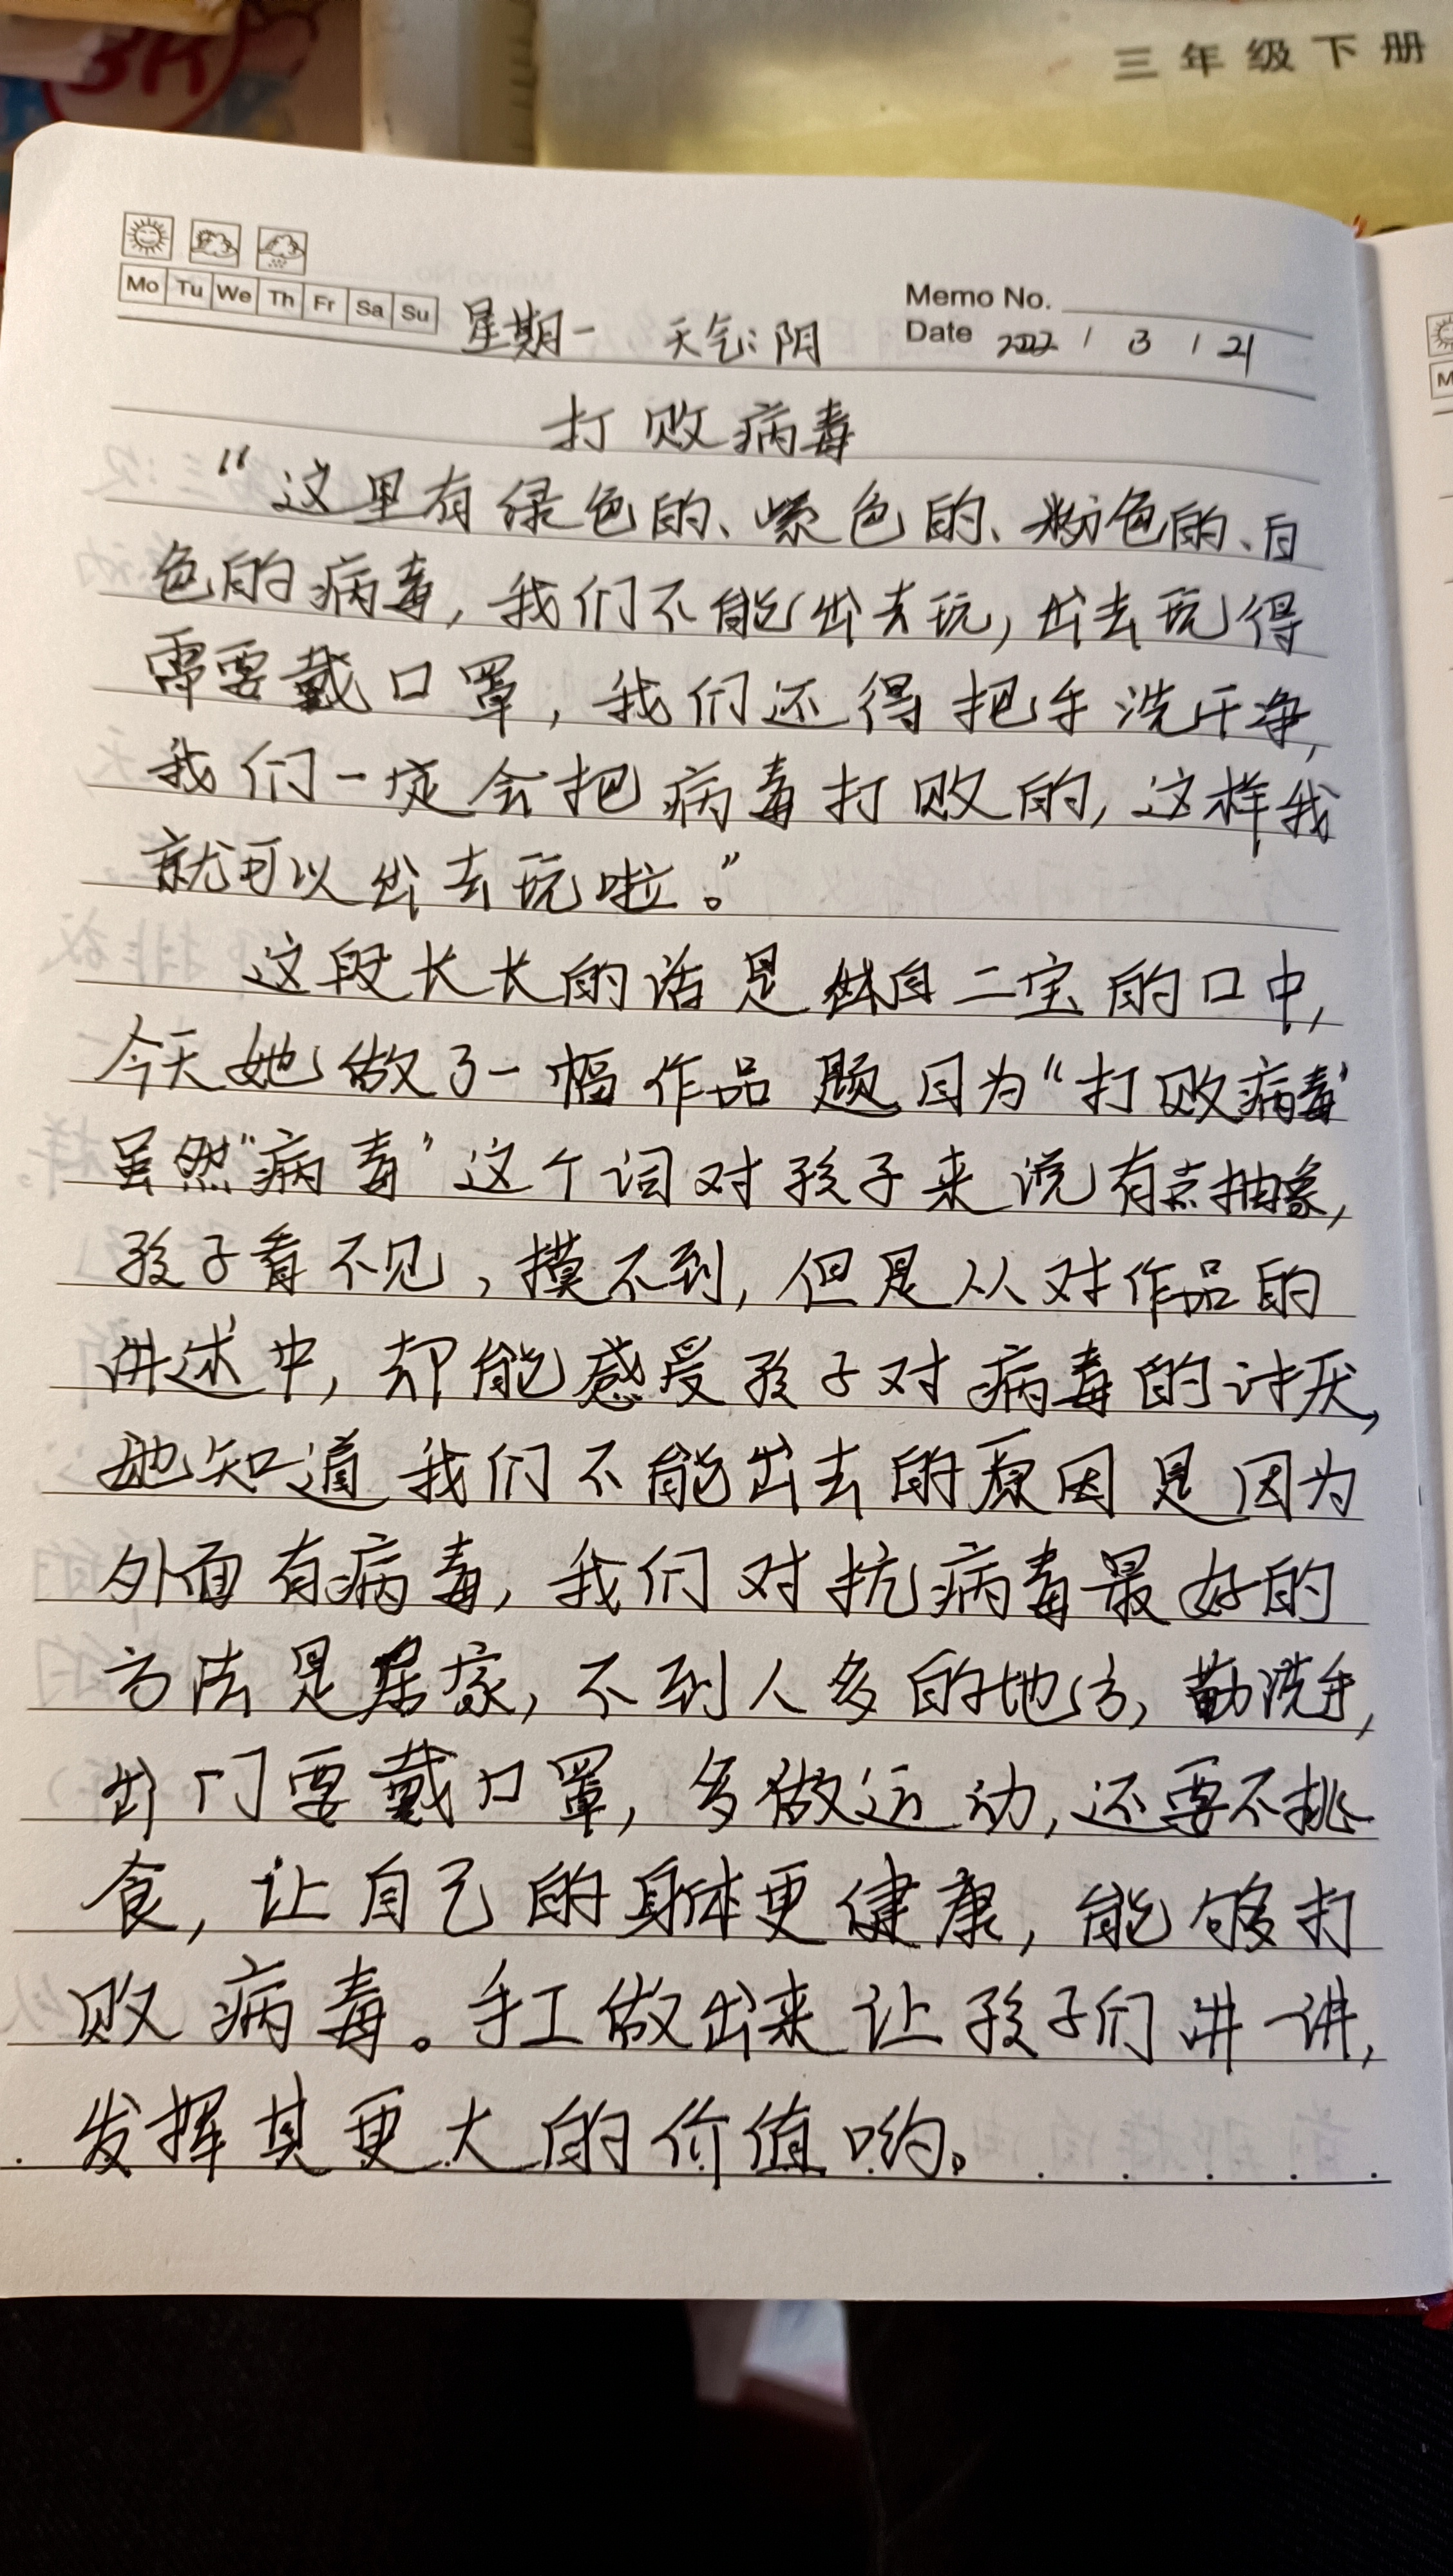 三年级下册
Mo Tu We Th Fr Sa Su
星期一 天气:阴
Memo No.
Date 2022 / 3 / 21
打败病毒
“这里有绿色的、紫色的、粉色的、白
色的病毒,我们不能出去玩,出去玩得
需要戴口罩,我们还得把手洗干净,
我们一定会把病毒打败的,这样我
就可以出去玩啦。”
这段长长的话是出自二宝的口中,
今天她做了一幅作品 题目为“打败病毒”
虽然“病毒”这个词对孩子来说有点抽象,
孩子看不见,摸不到,但是从对作品的
讲述中,却能感受孩子对病毒的讨厌,
她知道我们不能出去的原因是因为
外面有病毒,我们对抗病毒最好的
方法是居家,不到人多的地方,勤洗手,
出门要戴口罩,多做运动,还要不挑
食,让自己的身体更健康,能够打
败病毒。手工做出来让孩子们讲一讲,
发挥其更大的价值哟。